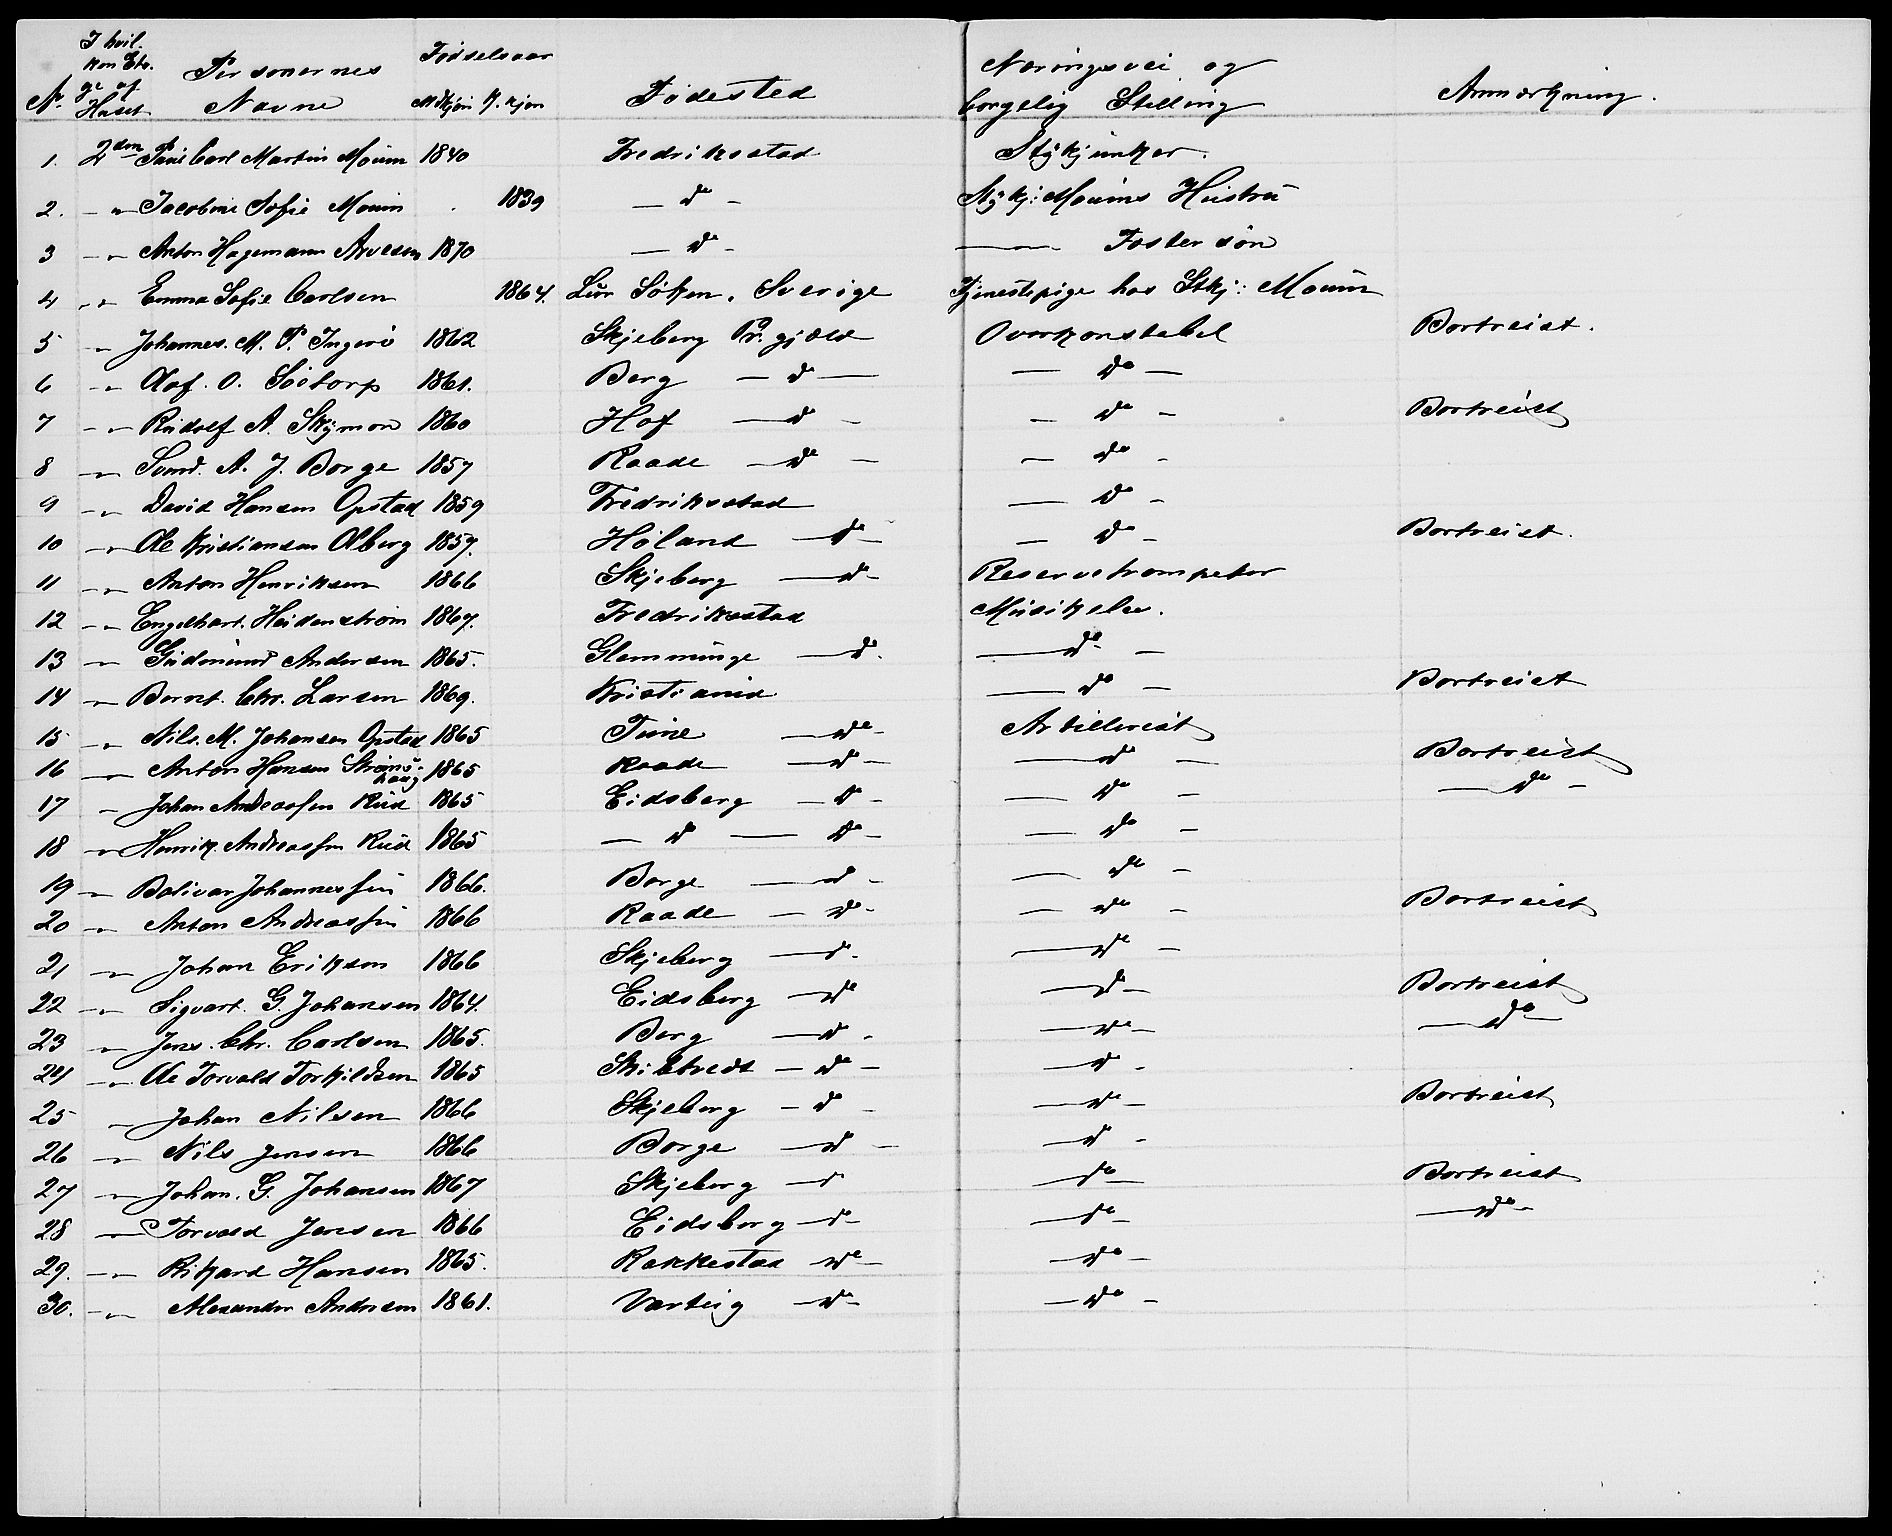 I hvil-
ken Eta-
ge af
Huset
No. Personernes Navne Fødselsaar Mdkjøn K.kjøn Fødested Næringsvei og borgelig Stilling Anmærkning.
1. 2den Paul Carl Martin Moum 1840 Fredriksstad Stykjunker.
2. - " - Jacobine Sofie Moum 1839 — do - Stykj: Moums Hustru
3 - " - Anton Hagemann Arvesen 1870 — do - —"— Fostersøn
4 - " - Emma Sofie Carlsen 1864. Lur Soken. Sverige Tjenestepige hos Stkj: Moum
5 - " - Johannes. M. P. Ingerø 1862 Skjeberg Pr. gjæld Overkonstabel Bortreist.
6 - " - Olof. O. Soetorp 1861. Berg — do — — do —
7 - " - Rudolf A. Skymon 1860 Hof — do - — do - Bortreist
8 - " - Svend. A. J. Borge 1857 Raade — do — — do -
9 - " - David Hansen Opstad 1859 Fredriksstad — do -
10 - " - Ole Kristiansen Olberg 1857. Høland — do - — do - Bortreist.
11 - " - Anton Henriksen 1866 Skjeberg — do - Reservetrompeter
12 - " - Engelhart. Heidenstrøm 1867. Fredriksstad Musikelev.
13 - " - Gudmund Andersen 1865. Glemminge — do. — do -
14 - " - Bernt. Chr. Larsen 1869. Kristiania — do - Bortreist
15 - " - Nils. M. Johansen Opstad 1865 Tune — do - Artillerist
16 - " - Anton Hansen Strøms-
haug 1865 Raade — do - — do — Bortreist
17 - " - Johan Andreassen Rud 1865 Eidsberg — do - — do - — do -
18 - " - Henrik. Andreassen Rud 1865 — do — do - — do -
19 - " - Bolivar Johannessen 1866. Borge — do - — do -
20 - " - Anton Andreassen 1866 Raade — do - — do - Bortreist
21 - " - Johan Eriksen 1866 Skjeberg — do - — do -
22 - " - Sigvart. G. Johansen 1864. Eidsberg — do — do - Bortreist
23 - " - Jens. Chr. Carlsen 1865. Berg — do - — do - — do —
24 - " - Ole Torvald Torkildsen 1865 Skibtvedt — do - — do -
25 - " - Johan Nilsen 1866 Skjeberg - do - — do - Bortreist
26 - " - Nils Jensen 1866 Borge — do - — do -
27 - " - Johan. G. Johansen 1867 Skjeberg — do — do - Bortreist
28 - " - Torvald Jensen 1866 Eidsberg — do - — do - — do -
29. - " - Rikard Hansen 1865. Rakkestad — do - — do -
30. - " - Alexander Andersen 1861. Varteig — do - — do -